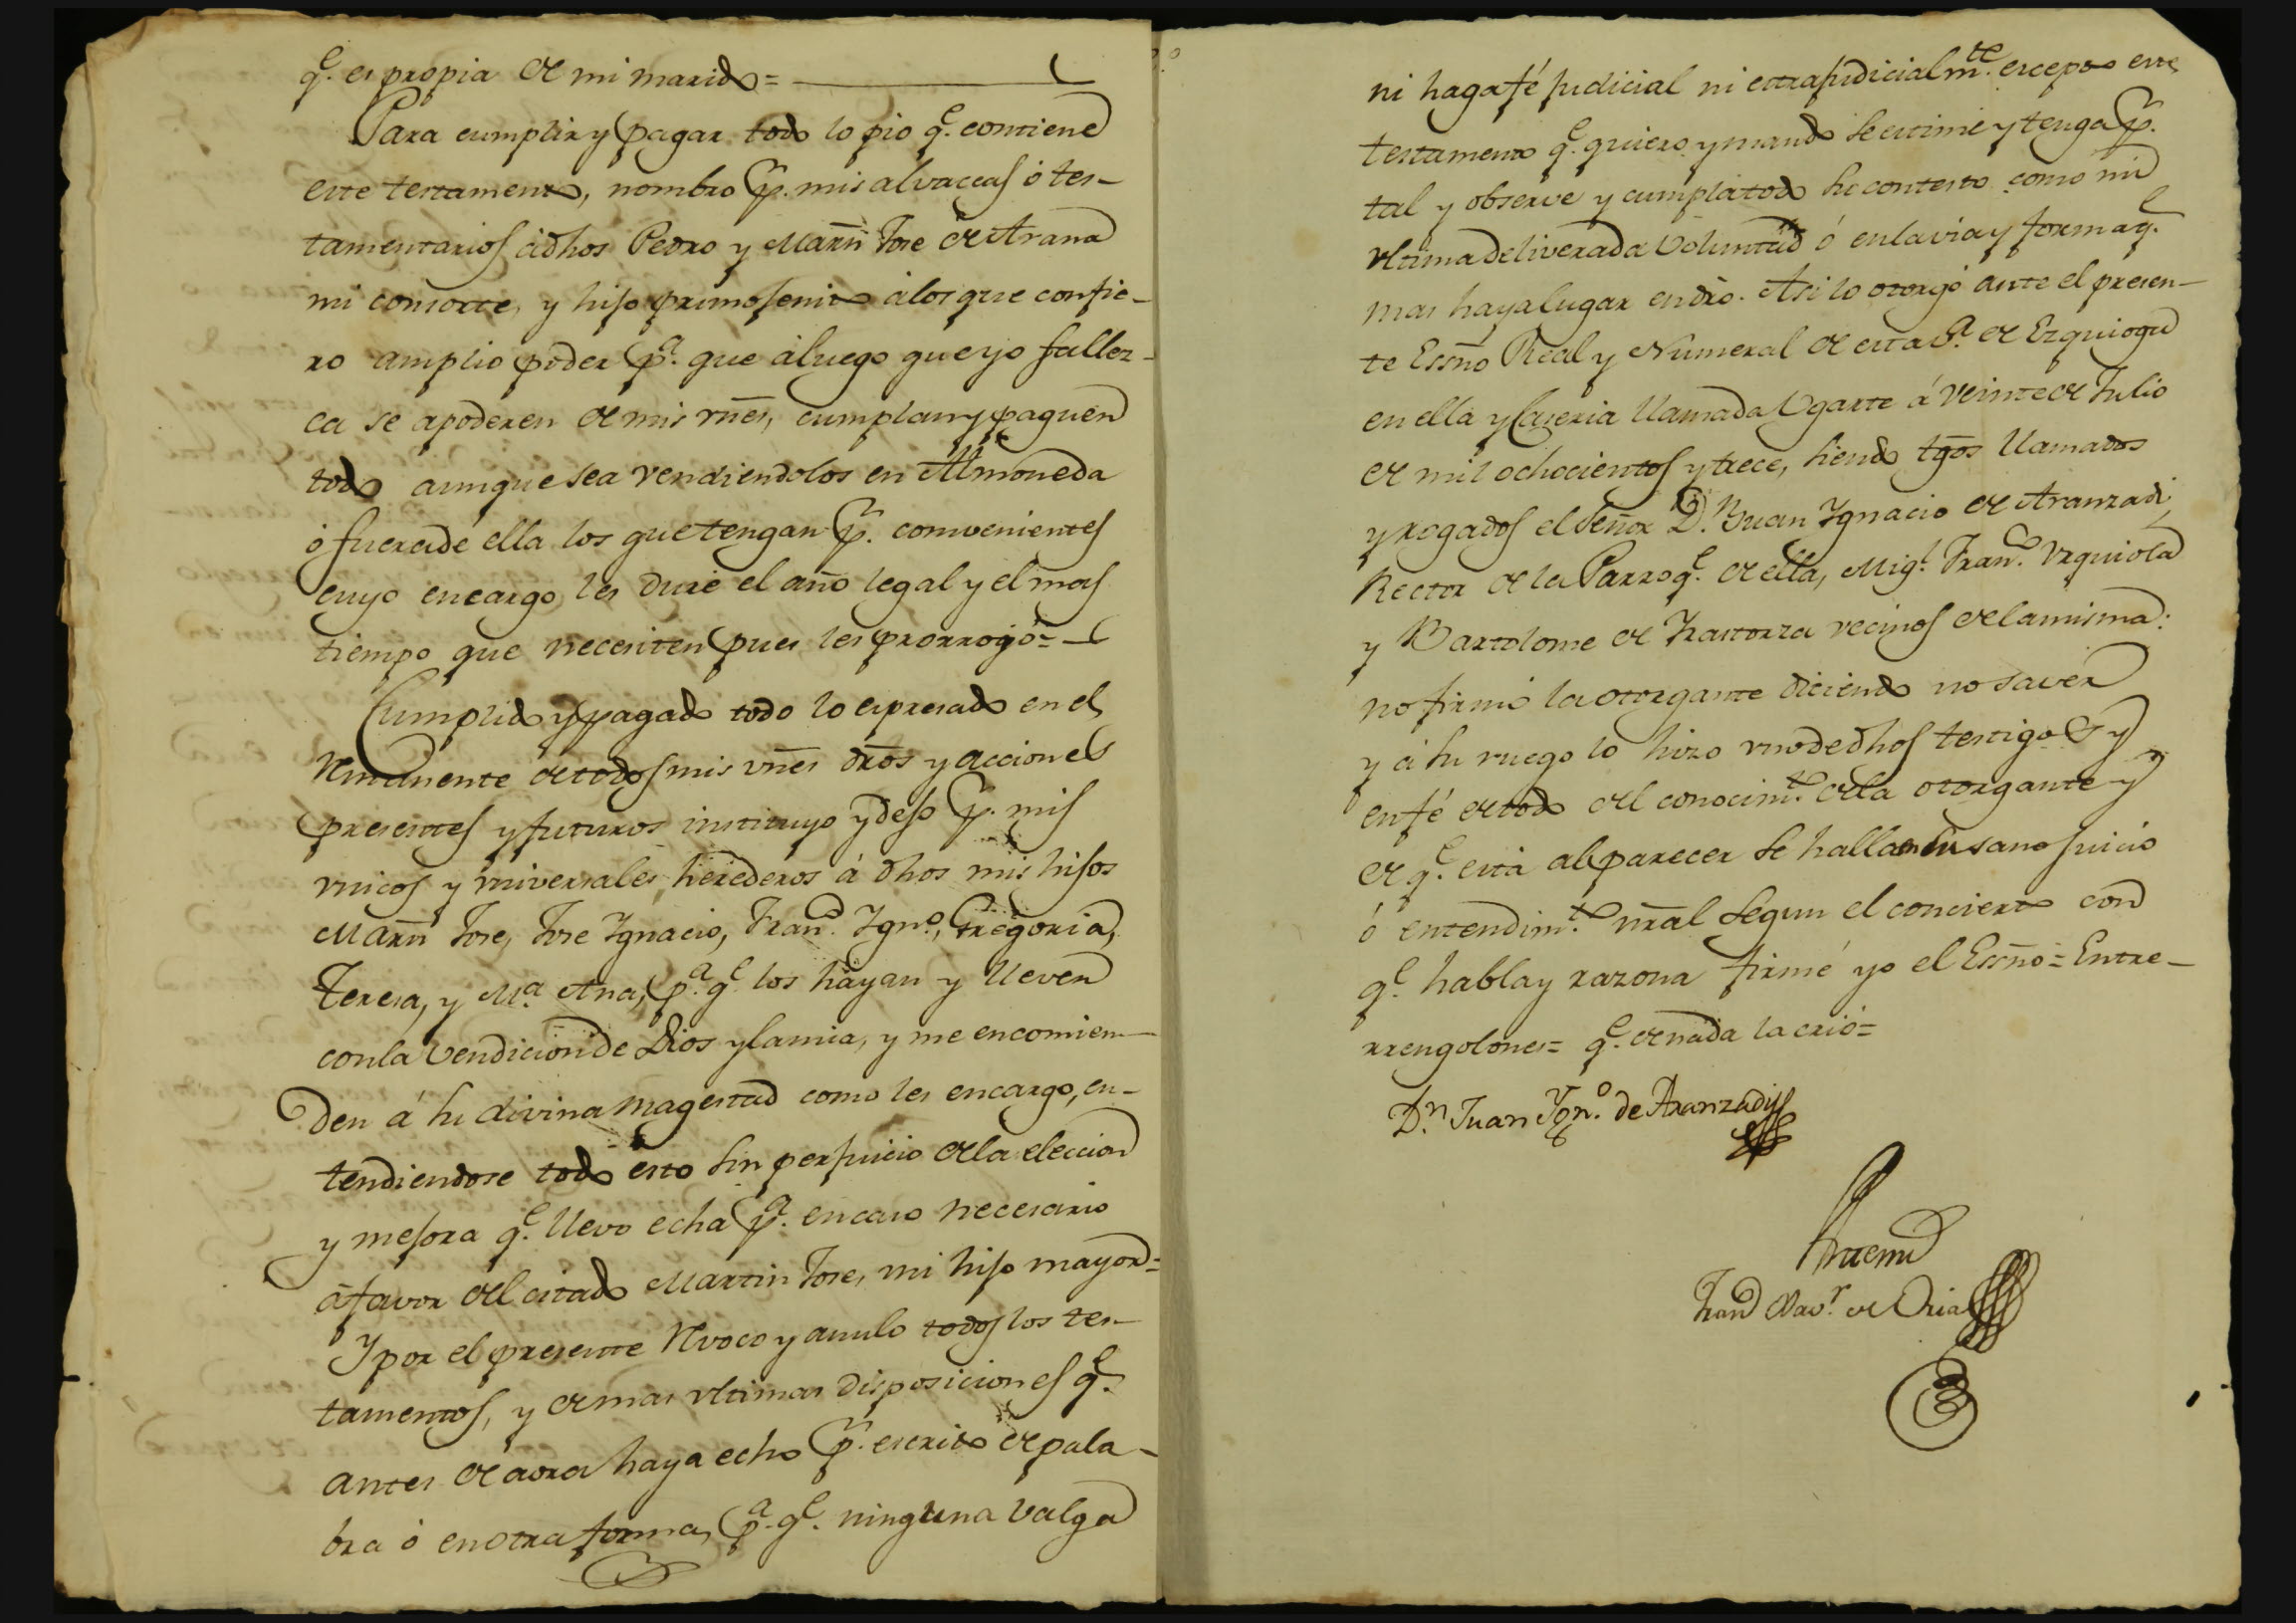 q.e es propia de mi marido =
Para cumplir y pagar todo lo pio q.e contiene
este testamento, nombro p.r mis alvaceas ó tes-
tamentarios á dhos Pedro y Martn Jose de Arana
mi consorte, y hijo primojenito á los que confie-
ro amplio poder p.a que áluego que yo fallez-
ca se apoderen de mis vnes, cumplan y paguen
todo aunque sea vendiendolos en Almoneda
ó fuera de ella los que tengan p.r convenientes
cuyo encargo les dure el año legal y el mas
tiempo que necesiten pues les prorrogo =
Cumplido y pagado todo lo espresado en el
remanente de todos mis vnes dros y acciones
presentes y futuros instituyo y dejo p.r mis
vnicos y universales herederos á dhos mis hijos
Martn Jose, Jose Ygnacio, Fran.co Ygn.o, Gregoria,
Teresa, y M.a Ana, p.a q.e los hayan y lleven
con la vendicion de Dios y la mia, y me encomien-
den á su divina Magestad como les encargo, en-
tendiendose todo esto sin perjuicio de la eleccion
y mejora q.e llevo echa p.a en caso necesario
á favor del citado Martin Jose, mi hijo mayor =
Y por el presente revoco y anulo todos los tes-
tamentos, y demas vltimas disposiciones q.e
antes de aora haya echo p.r escrito de pala-
bra ó en otra forma, p.a q.e ninguna valga
ni haga fé judicial ni estrajudicialm.te escepto este
testamento q.e quiero y mando se estime y tenga p.r
tal y observe y cumpla todo su contesto como mi
vltima deliverada voluntad ó en la via y forma q.e
mas haya lugar en dro. Asi lo otorgó ante el presen-
te Essno Real y Numeral de esta V.a de Ezquioga
en ella y Caseria llamada Ugarte á veinte de Julio
de mil ochocientos y trece, siendo tgos llamados
y rogados el Señor D.n Juan Ygnacio de Aranzadi,
Rector de la Parroq.e de ella, Mig.l Fran.co Vrquiola
y Bartolome de Yrastorza vecinos de la misma:
no firmó la otorgante diciendo no saver
y á su ruego lo hizo vno de dhos testigos y
en fé de todo del conocim.to de la otorgante y
de q.e esta al parecer se halla en su sano juicio
ó entendim.to nral segun el concierto con
q.e habla y razona firmé yo el Essno = Entre-
rrengolones = q.e de nada la crió =
D.n Juan Ygn.o de Aranzadi
Antemi
Fran.co Xav.r de Oria